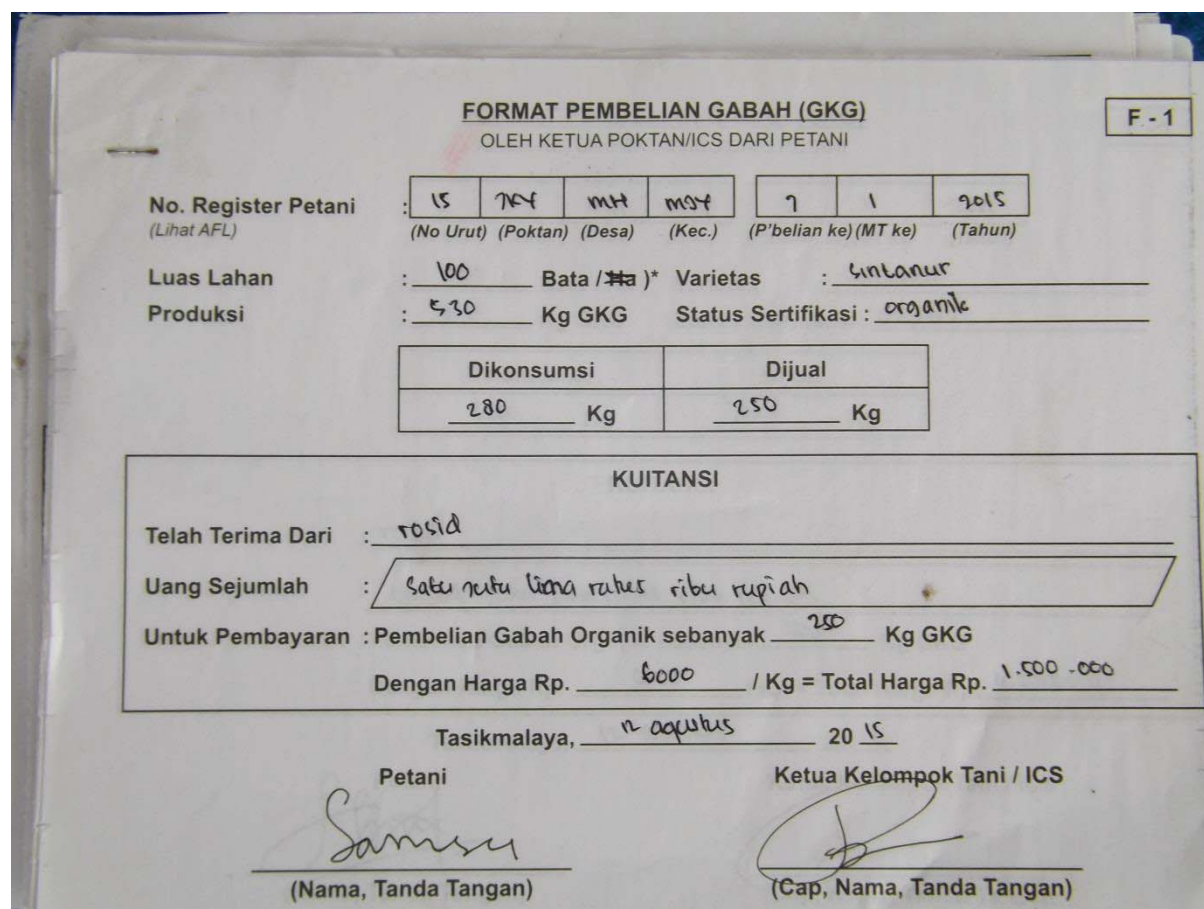 FORMAT PEMBELIAN GABAH (GKG)
F - 1
OLEH KETUA POKTAN/ICS DARI PETANI
No. Register Petani : 15 MH 1 2015
(Lihat AFL) (No Urut) (Poktan) (Desa) (Kec.) (P'belian ke) (MT ke) (Tahun)
Luas Lahan : 100 Bata / Ha )* Varietas : Sintanur
Produksi : 530 Kg GKG Status Sertifikasi : organik
Dikonsumsi Dijual
280 Kg 250 Kg
KUITANSI
Telah Terima Dari : rosid
Uang Sejumlah : Satu juta lima ratus ribu rupiah
Untuk Pembayaran : Pembelian Gabah Organik sebanyak 250 Kg GKG
Dengan Harga Rp. 6000 / Kg = Total Harga Rp. 1.500.000
Tasikmalaya, 12 agustus 20 15
Petani Ketua Kelompok Tani / ICS
Samsu
(Nama, Tanda Tangan) (Cap, Nama, Tanda Tangan)